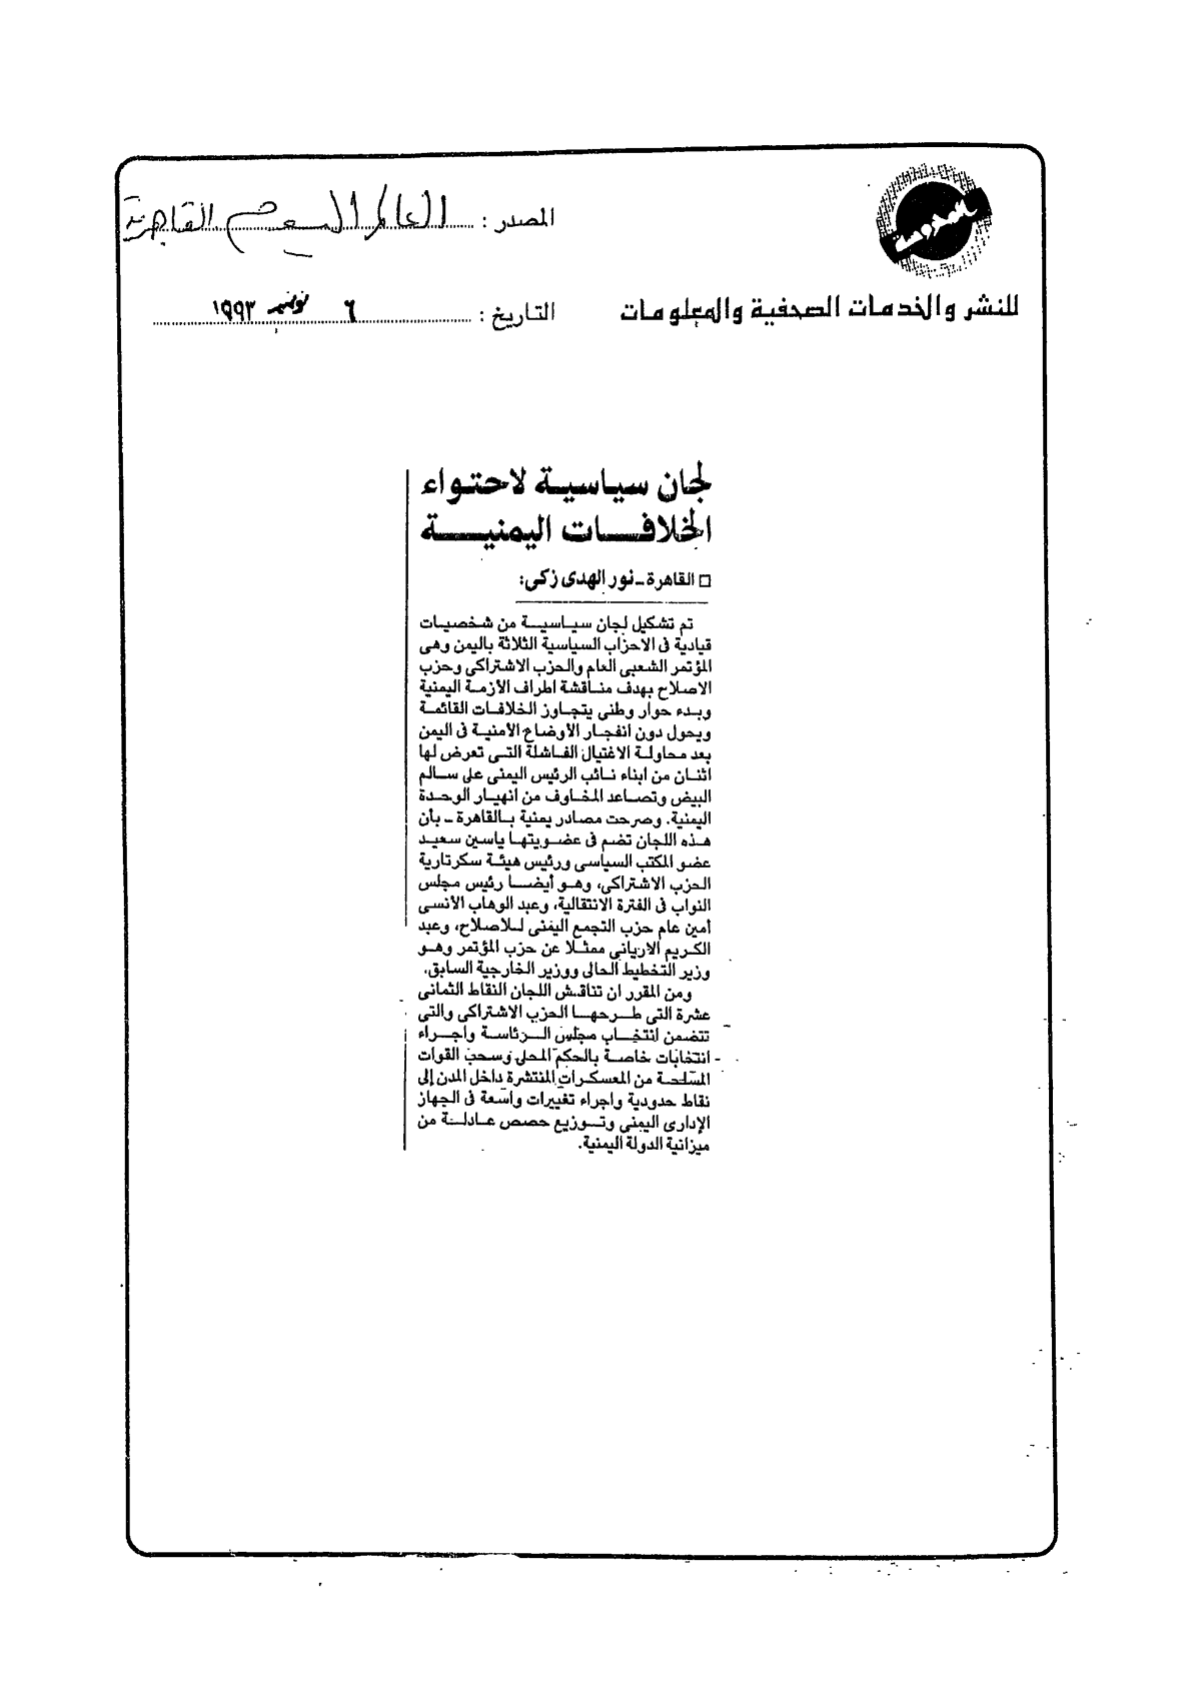 المصدر : العالم اليوم القاهرية
للنشر والخدمات الصحفية والمعلومات
التاريخ : ٦ نوفمبر ١٩٩٣
لجان سياسية لاحتواء
الخلافات اليمنية
□ القاهرة ـ نور الهدى زكى:
تم تشكيل لجان سياسية من شخصيات
قيادية فى الاحزاب السياسية الثلاثة باليمن وهى
المؤتمر الشعبى العام والحزب الاشتراكى وحزب
الاصلاح بهدف مناقشة اطراف الأزمة اليمنية
وبدء حوار وطنى يتجاوز الخلافات القائمة
ويحول دون انفجار الأوضاع الأمنية فى اليمن
بعد محاولة الاغتيال الفاشلة التى تعرض لها
اثنان من ابناء نائب الرئيس اليمنى على سالم
البيض وتصاعد المخاوف من انهيار الوحدة
اليمنية. وصرحت مصادر يمنية بالقاهرة ـ بأن
هذه اللجان تضم فى عضويتها ياسين سعيد
عضو المكتب السياسى ورئيس هيئة سكرتارية
الحزب الاشتراكى، وهو أيضا رئيس مجلس
النواب فى الفترة الانتقالية، وعبد الوهاب الأنسى
أمين عام حزب التجمع اليمنى للاصلاح، وعبد
الكريم الاريانى ممثلا عن حزب المؤتمر وهو
وزير التخطيط الحالى ووزير الخارجية السابق.
ومن المقرر ان تناقش اللجان النقاط الثمانى
عشرة التى طرحها الحزب الاشتراكى والتى
تتضمن انتخاب مجلس الرئاسة واجراء
انتخابات خاصة بالحكم المحلى وسحب القوات
المسلحة من المعسكرات المنتشرة داخل المدن إلى
نقاط حدودية واجراء تغييرات واسعة فى الجهاز
الإدارى اليمنى وتوزيع حصص عادلة من
ميزانية الدولة اليمنية.